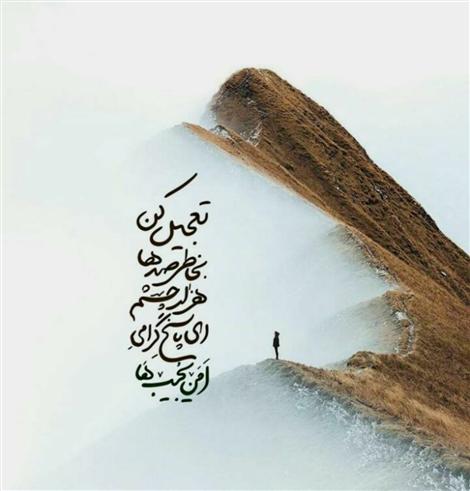 تعجیل کن
بخاطر صدها
هزار چشم
ای پاسخ گرامی
اَمّن یُجیب ها